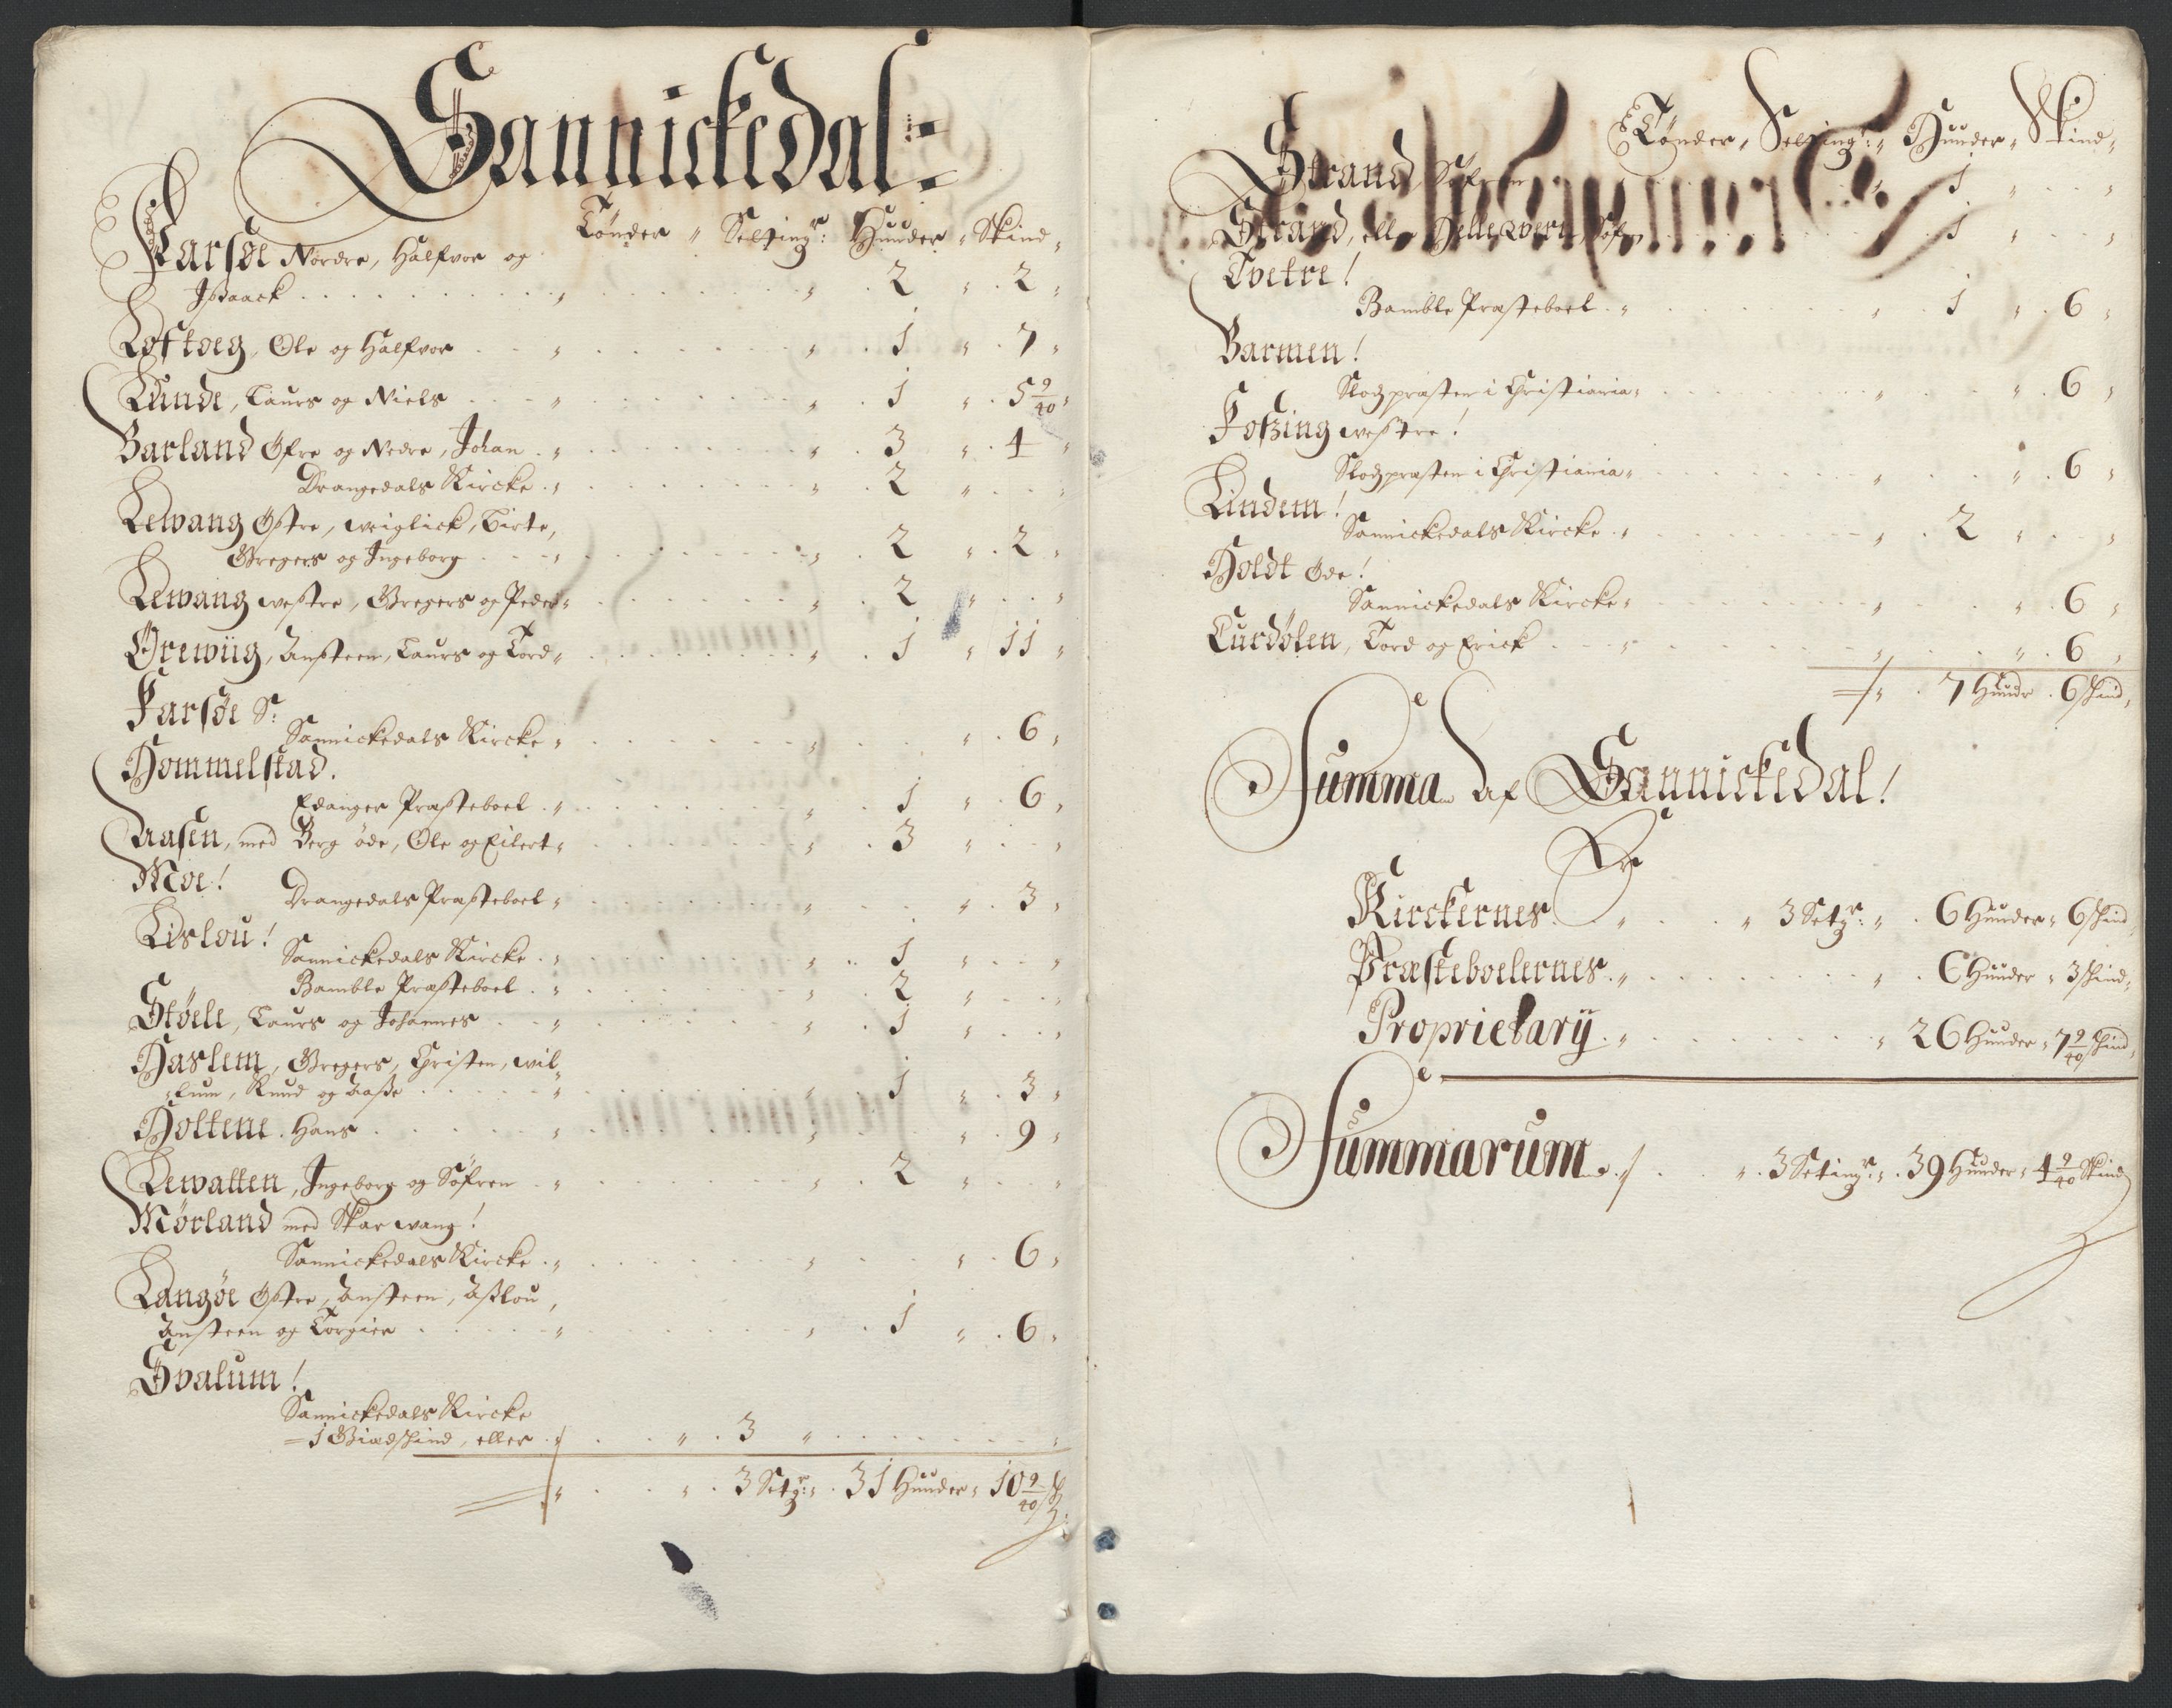 Sannickedal
Tønder " Setting: Hunder " Skind "
Farsøe Nordre, Halfvor og
Ißaack . . . " . . . " . 2 " . 2 "
Loftøeg, Ole og Halfvor . . " . . . " . 1 " . 7 "
Lunde, Laurs og Niels . . " . . . " . 1 " . 5 9/40 "
Barland Øfre og Nedre, Johan . " . . . " . 3 " . 4 "
Drangedals Kircke . " . . . " . 2 " . . "
Lewang Østre, wiglick, Birte,
Gregers og Ingeborg . . " . . . " . 2 " . 2 "
Lewang westre, Gregers og Peder " . . . " . 2 " . . "
Örewiig, Ansteen, Laurs og Tord " . . . " . 1 " 11 "
Farsøe Sr:
Sannickedals Kircke " . . . " . . " . 6 "
Hommelstad.
Edanger Præsteboel . " . . . " . 1 " . 6 "
Aasen, med Berg øde, Ole og Eilert " . . . " . 3 " . . "
Moe!
Drangedals Præsteboel " . . . " . . " . 3 "
Lislou!
Sannickedals Kircke . " . . . " . 1 " . . "
Bamble Præsteboel . " . . . " . 2 " . . "
Støele, Laurs og Johannes . . " . . . " . 1 " . . "
Haslem, Gregers, Christen, wil-
lum, Knud og Aaße . . " . . . " . 1 " . 3 "
Holtene. Hans . . . " . . . " . . " . 9 "
Lewatten, Ingeborg og Søfren . " . . . " . 2 " . . "
Mørland med Skarwang!
Sannickedals Kircke . " . . . " . . " . 6 "
Langøe Østre, Ansteen, Aßlou,
Ansteen og Torgier . . " . . . " . 1 " . 6 "
Svalum!
Sannickedals Kircke
1 Giedskind, eller . " . . " . 3 " . . . "
" . . " . 3 Setgr: " . 31 Hunder " 10 9/40 sk:
Tønder, Setting: " Hunder " Skind "
Strand, Søfren . . . " . 1 " . . "
Strand, eller Hellequern, Søfr. . . . 1 " . . "
Tvetre!
Bamble Præsteboel . " . . . " . 1 " . 6 "
Barmen!
Slodzpræsten i Christiania " . . . " . . " . 6 "
Foßing westre!
Slodzpræsten i Christiania " . . . " . . " . 6 "
Lindem!
Sannickedals Kircke . " . . . " . 2 " . . "
Holdt Øde!
Sannickedals Kircke " . . . " . . " . 6 "
Lurdølen, Tord og Erick . . " . . . " . . " . 6 "
" . 7 Hundr . 6 skind "
Summa Af Sannickedal!
Kirckernes . " . . " 3 Setgr: " . 6 Hunder " 6 skind "
Præsteboelernes . " . . . " . 6 Hunder " 3 skind "
Proprietarij . " . . . " 26 Hunder " 7 9/40 skind "
Summarum . . " . 3 Setingr: " . 39 Hunder " 4 9/40 Skind